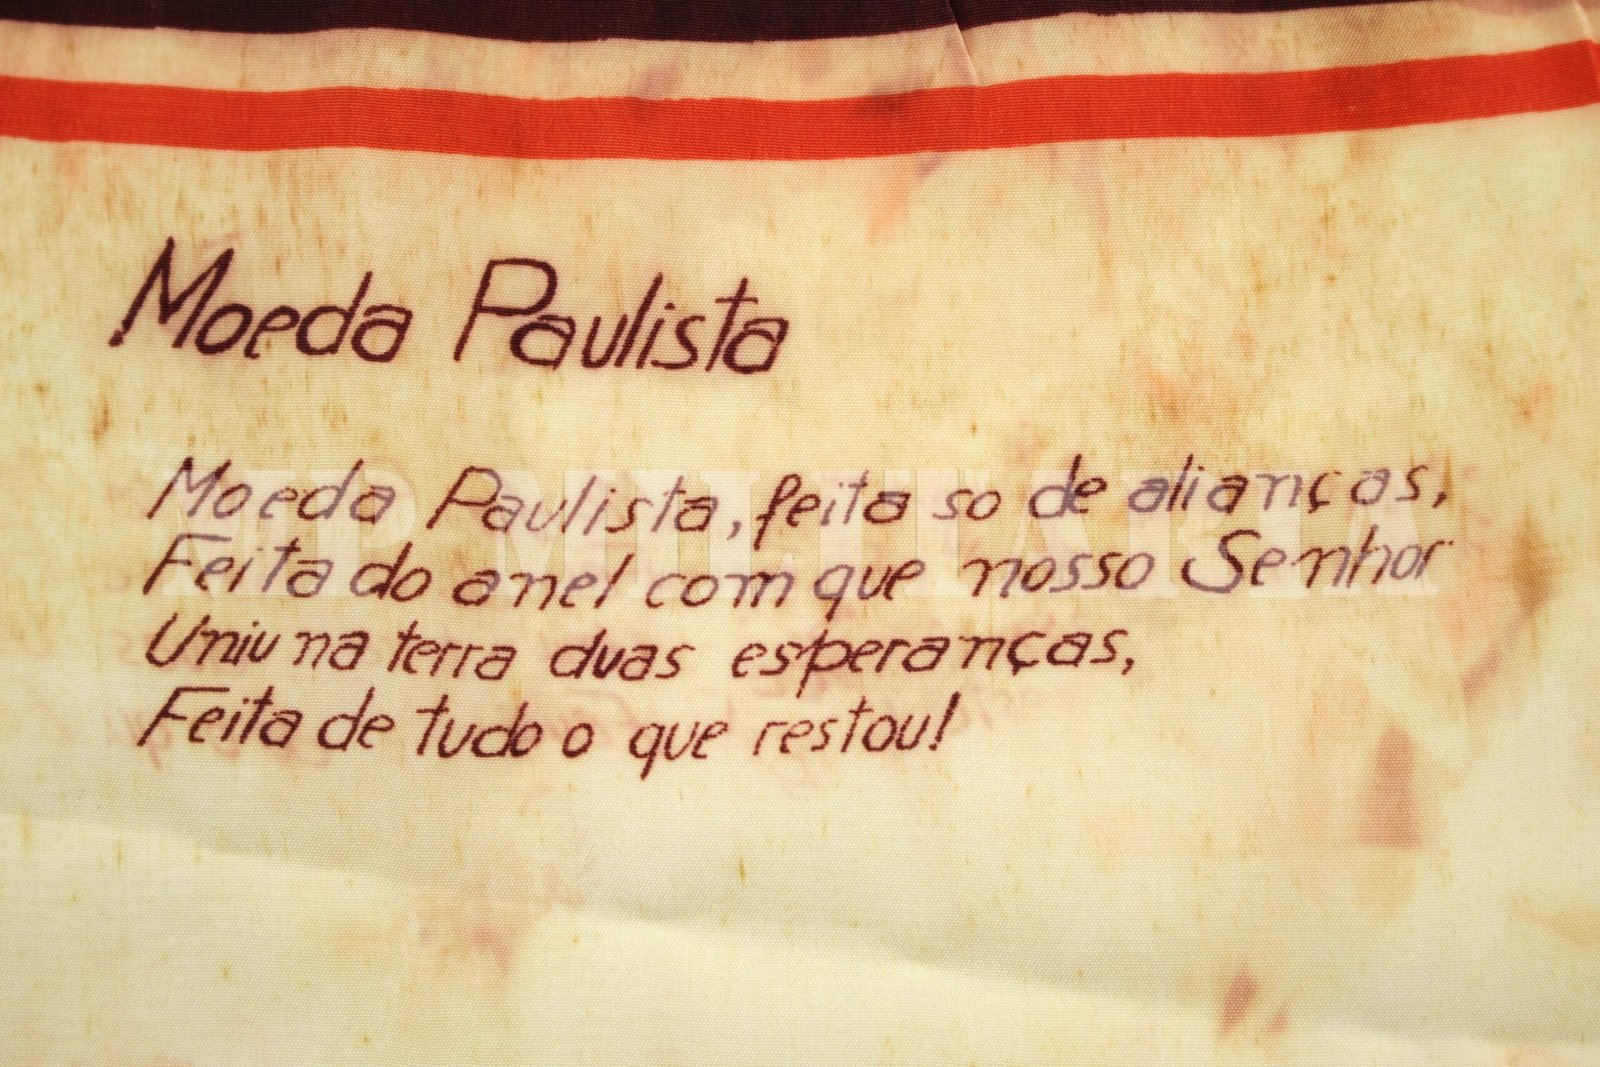 Moeda Paulista
Moeda Paulista, feita so de alianças,
Feita do anel com que nosso Senhor
Uniu na terra duas esperanças,
Feita de tudo o que restou!